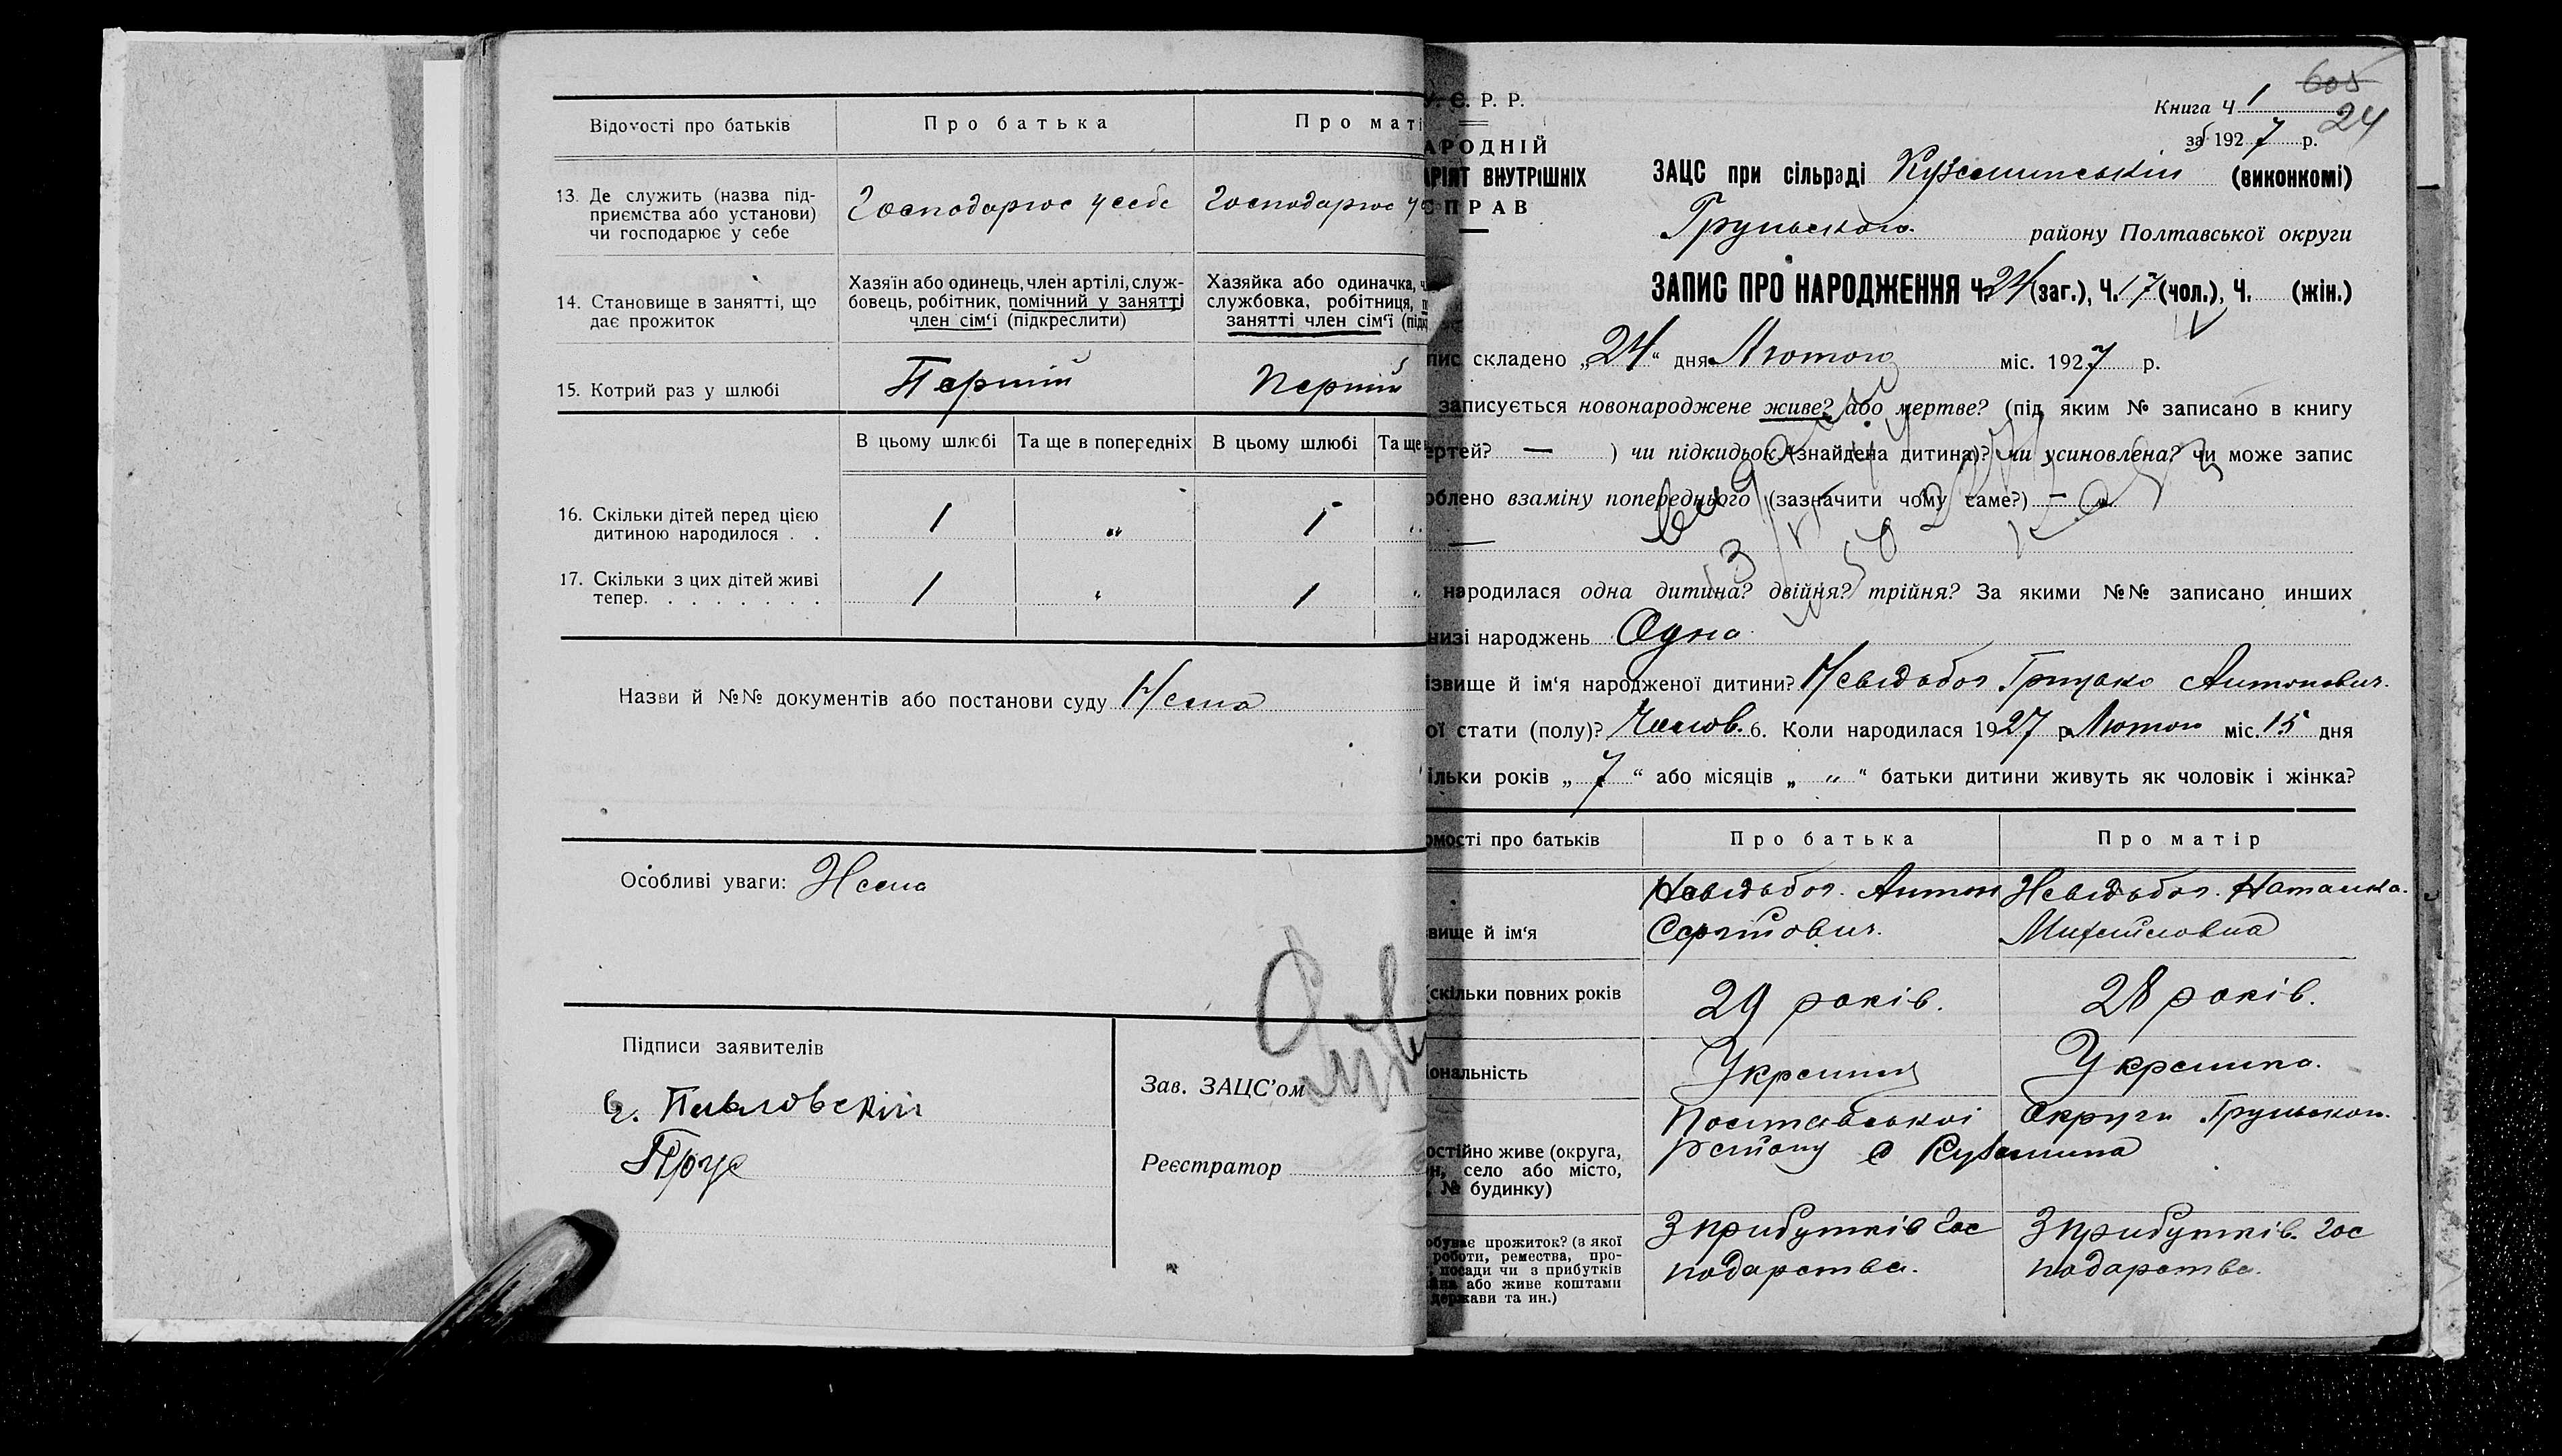 Відомості про батьків
Про батька
Про маті
13. Де служить (назва під-
приємства або установи)
чи господарює у себе
Господарює у себе
Господарює у
14. Становище в занятті, що
дає прожиток
Хазяїн або одинець, член артілі, служ-
бовець, робітник, помічний у занятті
член сім'ї (підкреслити)
Хазяйка або одиначка, ч
службовка, робітниця, п
занятті член сім'ї (підк
15. Котрий раз у шлюбі
Перший
Перший
В цьому шлюбі
Та ще в попередніх
В цьому шлюбі
Та ще
16. Скільки дітей перед цією
дитиною народилося . .
1
"
1
"
17. Скільки з цих дітей живі
тепер. . . . . . . .
1
"
1
"
Назви й №№ документів або постанови суду Нема
Особливі уваги: Нема
Підписи заявителів
Павловский
Зав. ЗАЦС'ом
Реєстратор
605
Книга Ч 1
24
за 1927 р.
У. С. Р. Р.
АРОДНІЙ
АРІЯТ ВНУТРІШНІХ
СПРАВ
ЗАЦС при сільраді Кузьминській (виконкомі)
Груньского району Полтавської округи
ЗАПИС ПРО НАРОДЖЕННЯ Ч. 24 (заг.), Ч. 17 (чол.), Ч. (жін.)
пис складено „24“ дня Лютого міс. 1927 р.
записується новонароджене живе? або мертве? (під яким № записано в книгу
ертей? — ) чи підкидьок (знайдена дитина)? чи усиновлена? чи може запис
облено взаміну попереднього (зазначити чому саме?) —
—
народилася одна дитина? двійня? трійня? За якими №№ записано инших
низі народжень Одна
ізвище й ім'я народженої дитини? Невідьбог. Грицько Антонович.
ої стати (полу)? Чолов. 6. Коли народилася 1927 р. Лютого міс. 15 дня
ільки років „7“ або місяців „ " “ батьки дитини живуть як чоловік і жінка?
омості про батьків
Про батька
Про матір
вище й ім'я
Невідьбог. Антон
Сергійович.
Невідьбог. Наталка.
Михайловна
скільки повних років
29 років.
28 років.
іональність
Українец
Українка.
остійно живе (округа,
н, село або місто,
, № будинку)
Полтавської Округи Груньского
Району с Кузьмина
обуває прожиток? (з якої
роботи, ремества, про-
, посади чи з прибутків
або живе коштами
держави та ин.)
З прибутків гос
подарства.
З прибутків. гос
подарства.